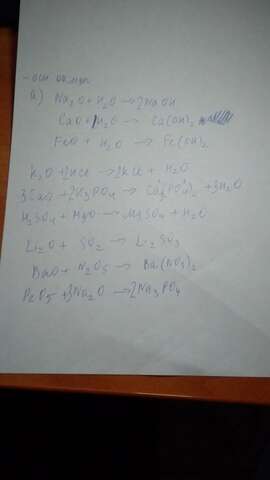 - осн оксиды
а) Na₂O + H₂O → 2NaOH
CaO + H₂O → Ca(OH)₂
FeO + H₂O → Fe(OH)₂
K₂O + 2HCl → 2KCl + H₂O
3CaO + 2H₃PO₄ → Ca₃(PO₄)₂ + 3H₂O
H₂SO₄ + MgO → MgSO₄ + H₂O
Li₂O + SO₂ → Li₂SO₃
BaO + N₂O₅ → Ba(NO₃)₂
P₂O₅ + 3Na₂O → 2Na₃PO₄